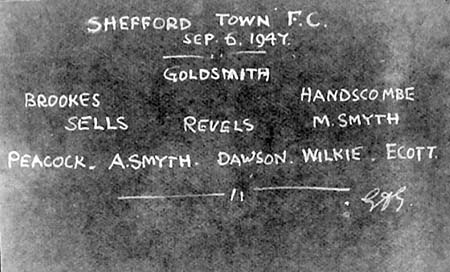 SHEFFORD TOWN F.C.
SEP. 6. 1947.
GOLDSMITH
BROOKES HANDSCOMBE
SELLS REVELS M. SMYTH
PEACOCK. A. SMYTH. DAWSON. WILKIE. ECOTT.